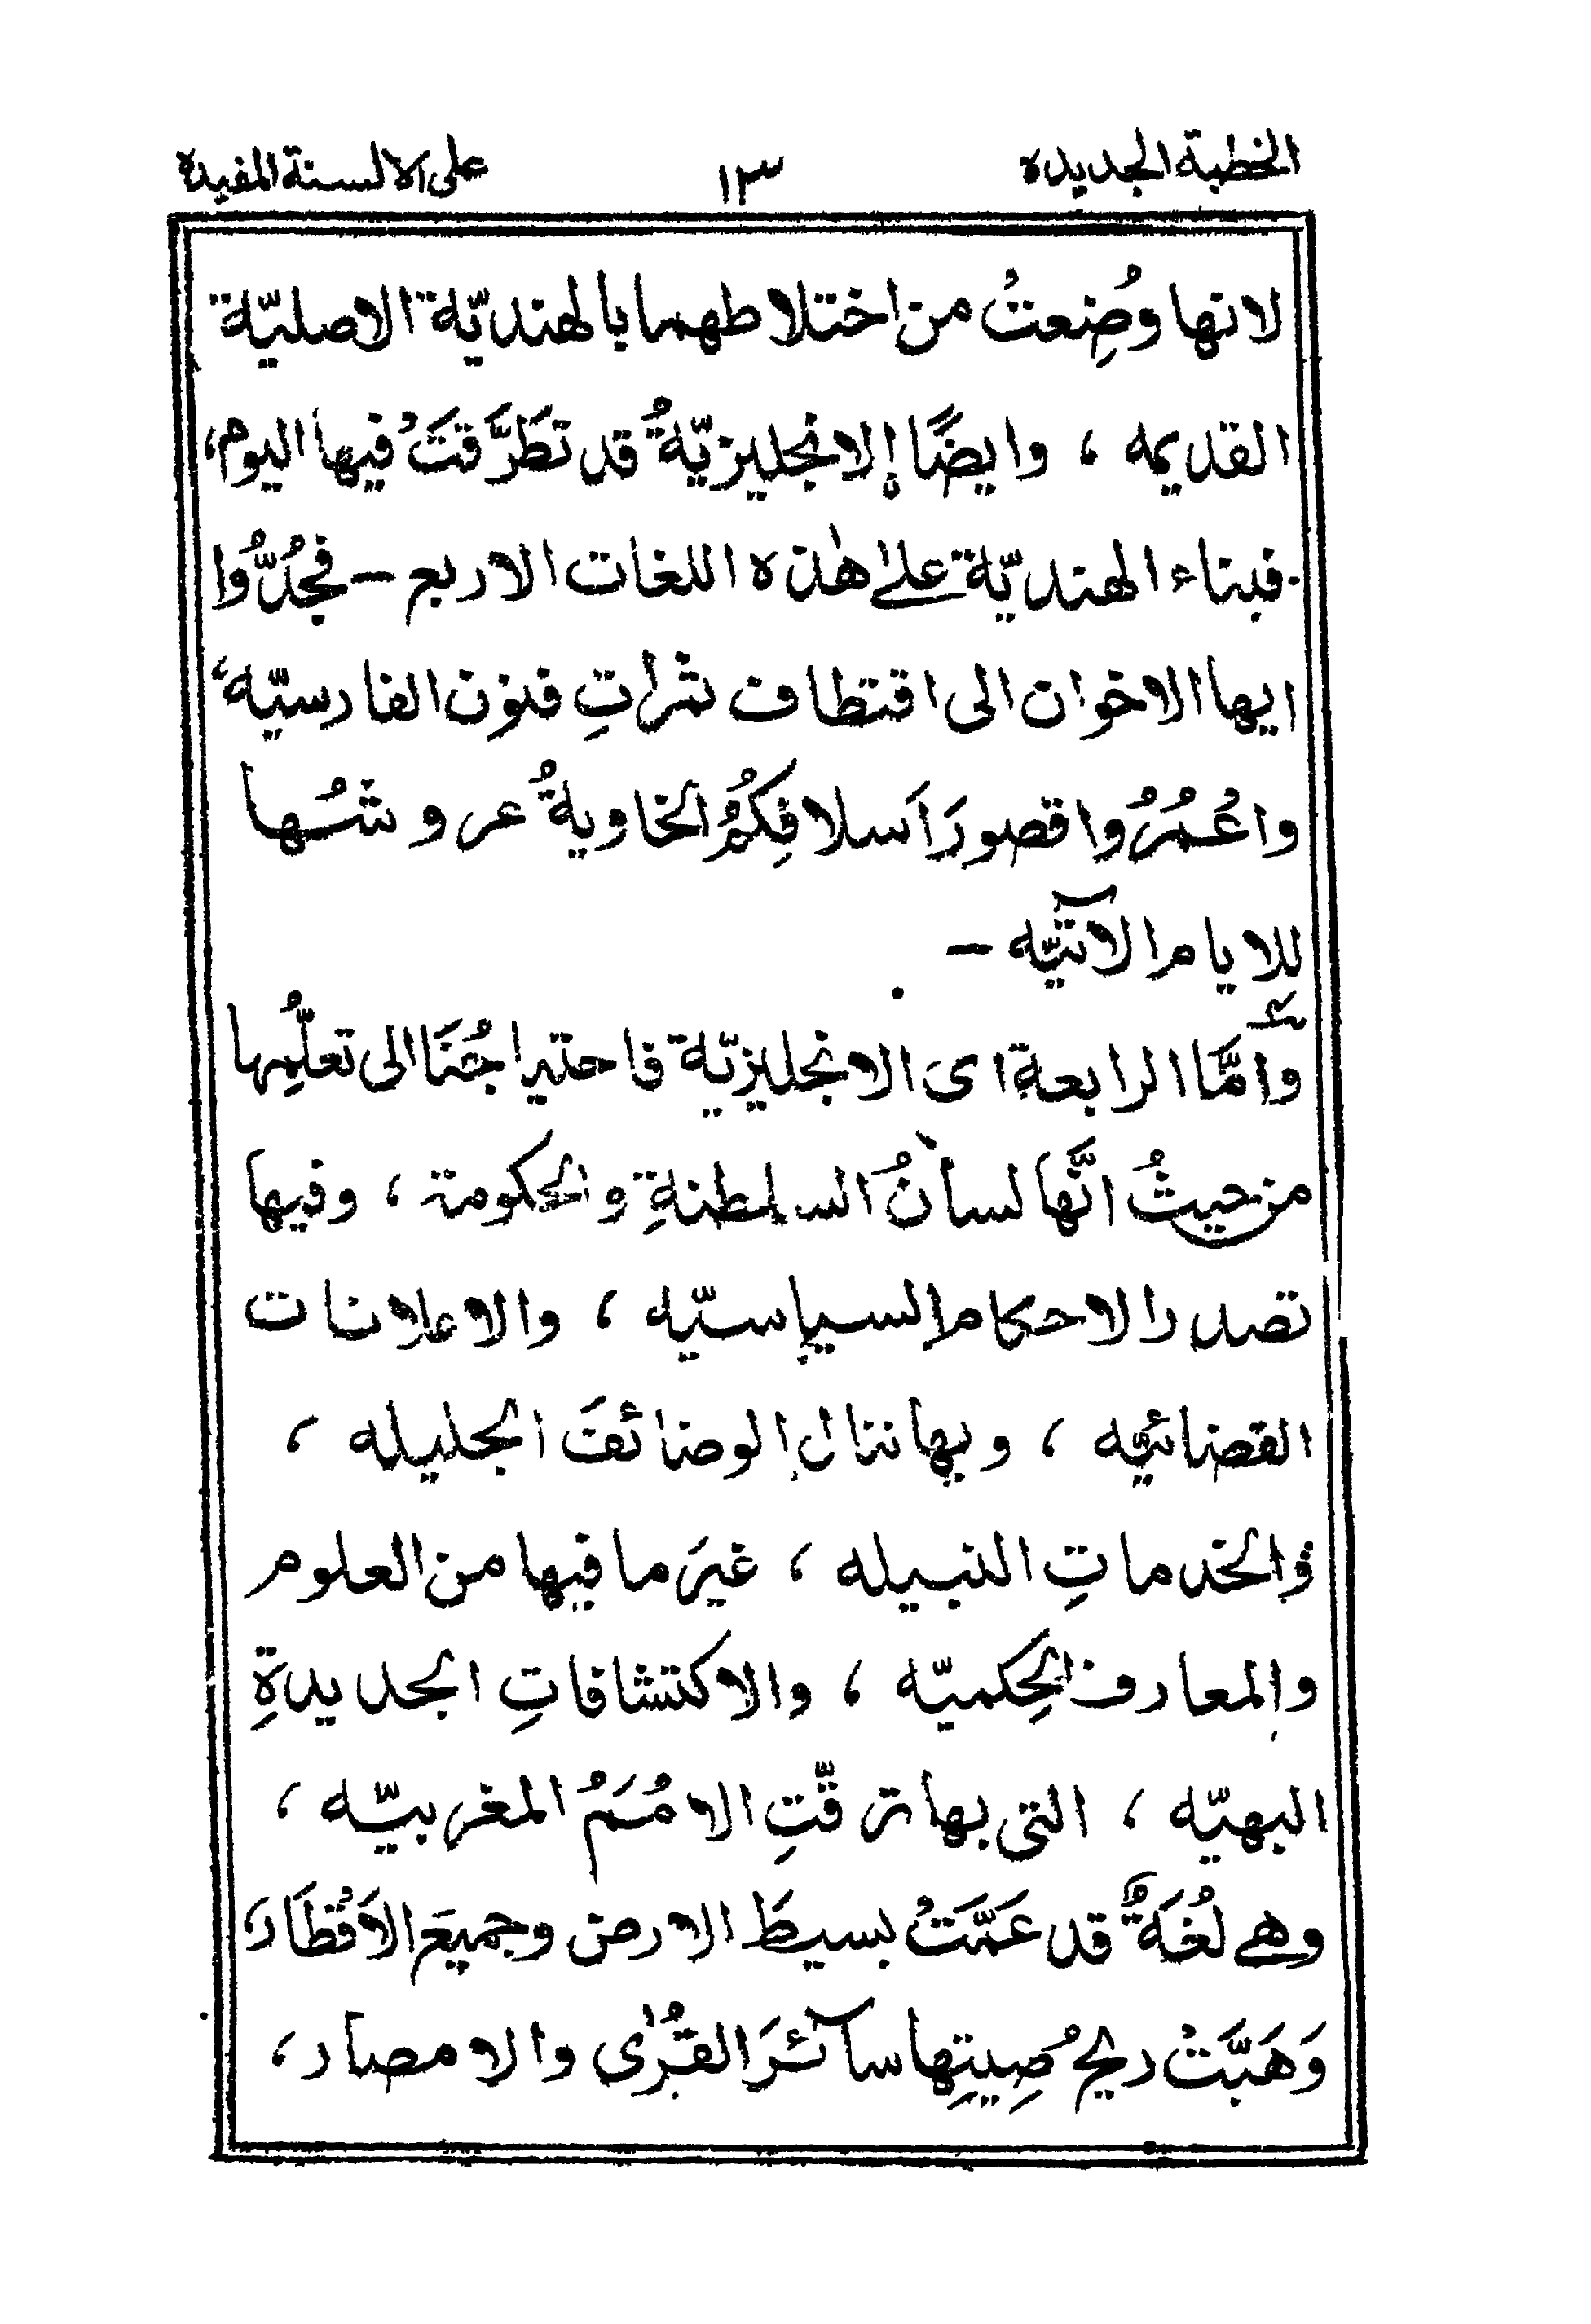 الخطبة الجديده ١٣ على الالسنة المفيده
لانها وُضِعتْ من اختلاطهما بالهنديّة الاصلية
القديمه ، وايضًا الانجليزيّةُ قد تطَرَّقتَْ فيها اليوم،
فبناء الهنديّة علىٰ هٰذه اللغات الاربع – فجُدُّوا
ايها الاخوان الى اقتطاف ثمراتِ فنون الفارسيّه،
واعُمُرُوا قصورَ اَسلافِكُمُ الخاويةُ عروشُها
للايام الآتيّه –
وَاَمَّا الرابعة اى الانجليزيّة فاحتيراجُنَا الى تعلُّمِها
من حيثُ انَّها لسانُ السلطنةِ والحكومة ، وفيها
تصدر الاحكام السياسيّه ، والاعلانات
القضائيّه ، وبها ننال الوضائفَ الجليله ،
والخدماتِ النبيله ، غيرَ ما فيها من العلوم
والمعارف الحِكميّه ، والاكتشافاتِ الجديدةِ
البهيّه ، التى بها ترقّتِ الامُمَُ المغربيّه ،
وهى لُغَةٌ قد عَمَّتْ بسيطَ الارض وجميعَ الاَقْطَار،
وَهَبَّتْ ريحُ صِيتِها سآئرَ القُرٰى والامصار،